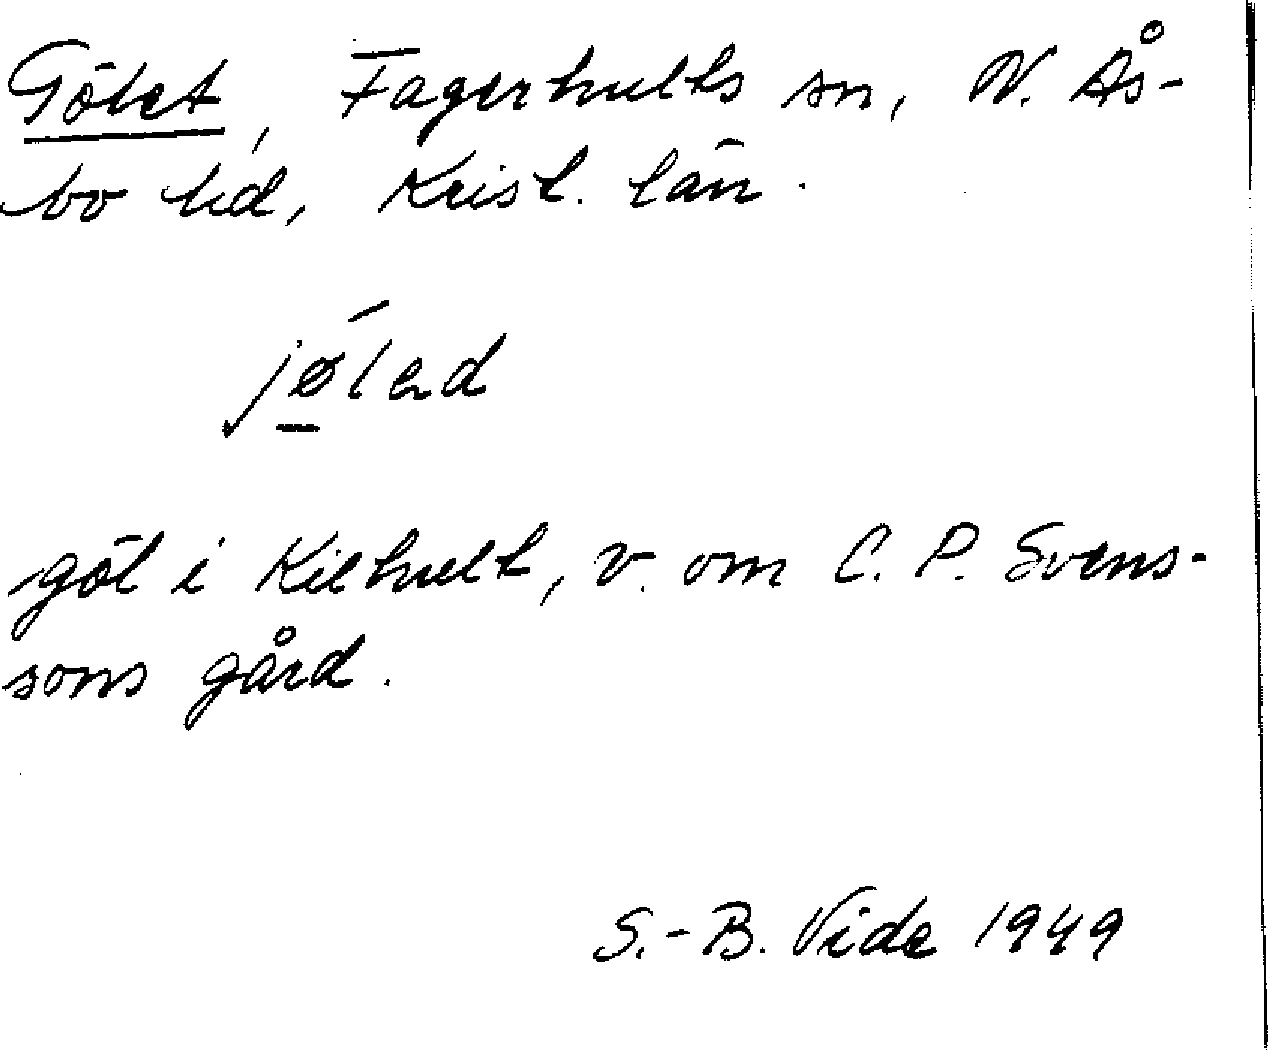 Gölet, Fagerhults sn, N. Ås-
bo hd, Krist. län.
jǿ̱ləd
göl i Kilhult, v. om C. P. Svens-
sons gård.
S.-B. Vide 1949